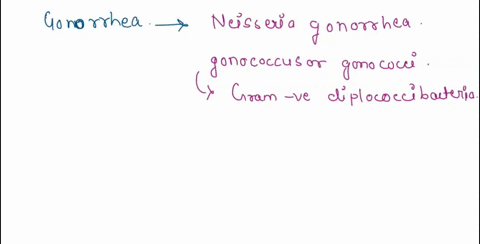 Gonorrhea. → Neisseria gonorrhea.
gonococcus or gonococci.
↳ Gram -ve diplococci bacteria.